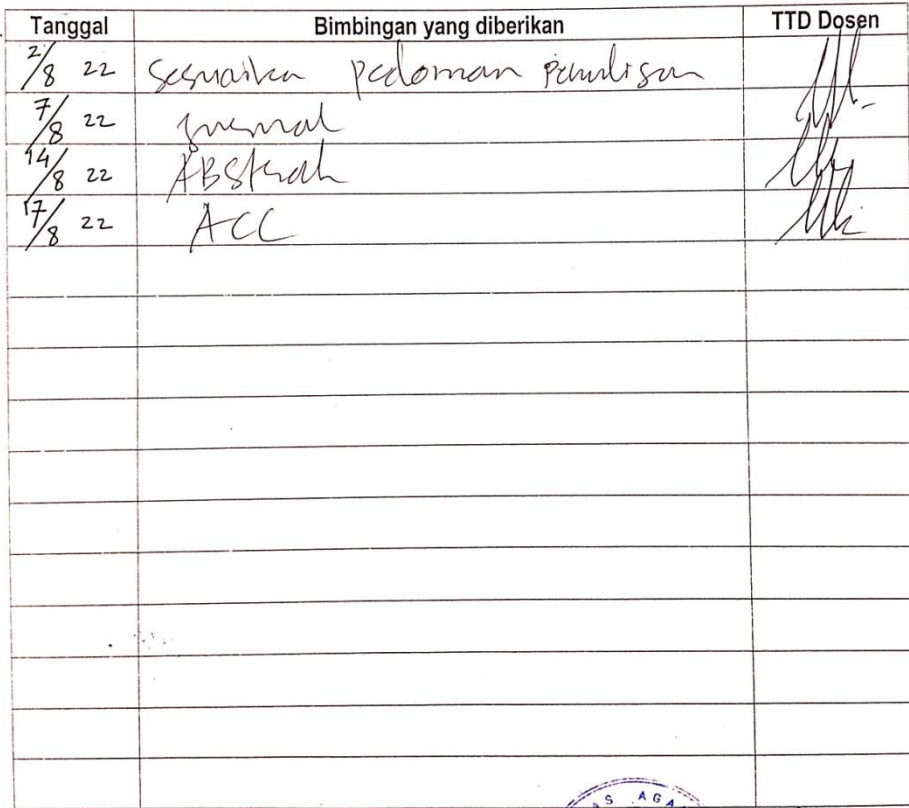 Tanggal Bimbingan yang diberikan TTD Dosen
2/8 22 Sesuaikan pedoman penulisan
7/8 22 Jurnal
14/8 22 ABStrak
17/8 22 ACC
AS AGA